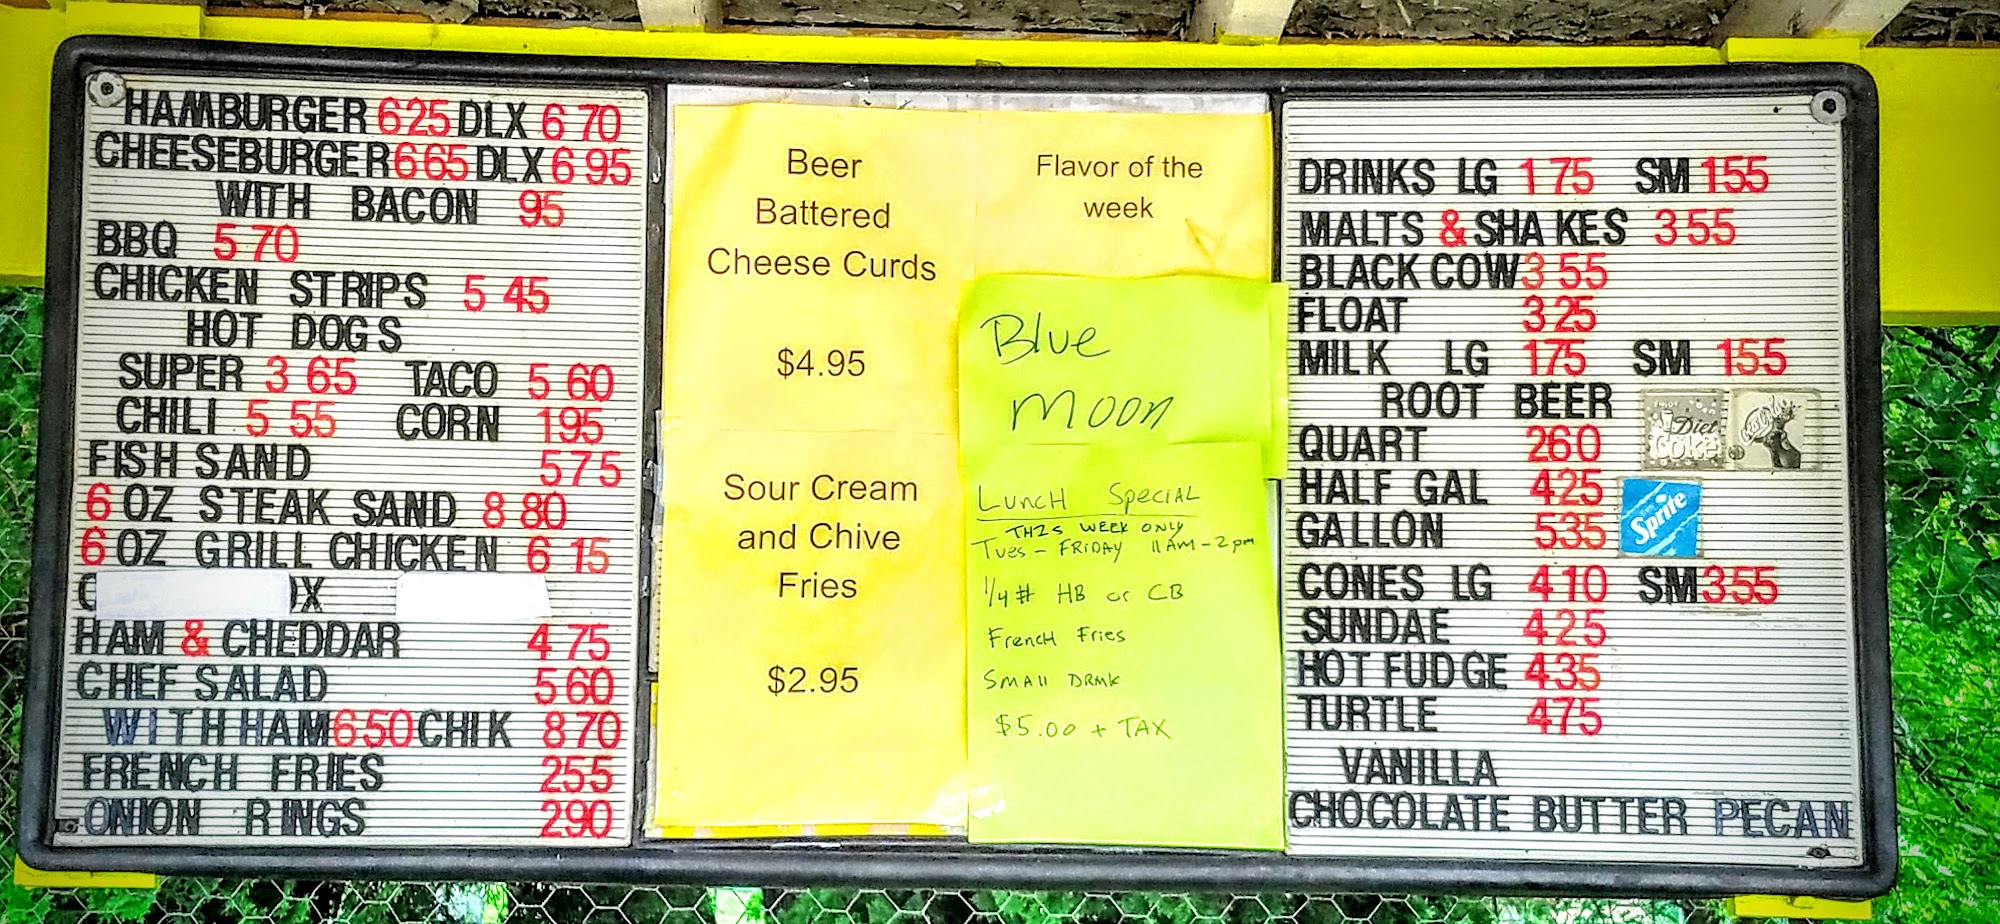 HAMBURGER 625 DLX 6 70
CHEESEBURGER 665 DLX 6 95
WITH BACON 95
BBQ 5 70
CHICKEN STRIPS 5 45
HOT DOGS
SUPER 3 65 TACO 5 60
CHILI 5 55 CORN 195
FISH SAND 575
6 OZ STEAK SAND 8 80
6 OZ GRILL CHICKEN 6 15
HAM & CHEDDAR 4 75
CHEF SALAD 560
WITH HAM 650 CHIK 8 70
FRENCH FRIES 255
ONION RINGS 290
Beer
Battered
Cheese Curds
$4.95
Sour Cream
and Chive
Fries
$2.95
Flavor of the
week
Blue
Moon
Lunch Special
THIS WEEK ONLY
Tues - FRIDAY 11 AM - 2 pm
1/4 # HB or CB
French Fries
Small Drink
$5.00 + TAX
DRINKS LG 1 75 SM 155
MALTS & SHAKES 3 55
BLACK COW 3 55
FLOAT 325
MILK LG 175 SM 155
ROOT BEER
QUART 260
HALF GAL 425
GALLON 535
CONES LG 410 SM 355
SUNDAE 425
HOT FUDGE 435
TURTLE 475
VANILLA
CHOCOLATE BUTTER PECAN
ENJOY
Diet
Coke
Coca-Cola
Sprite